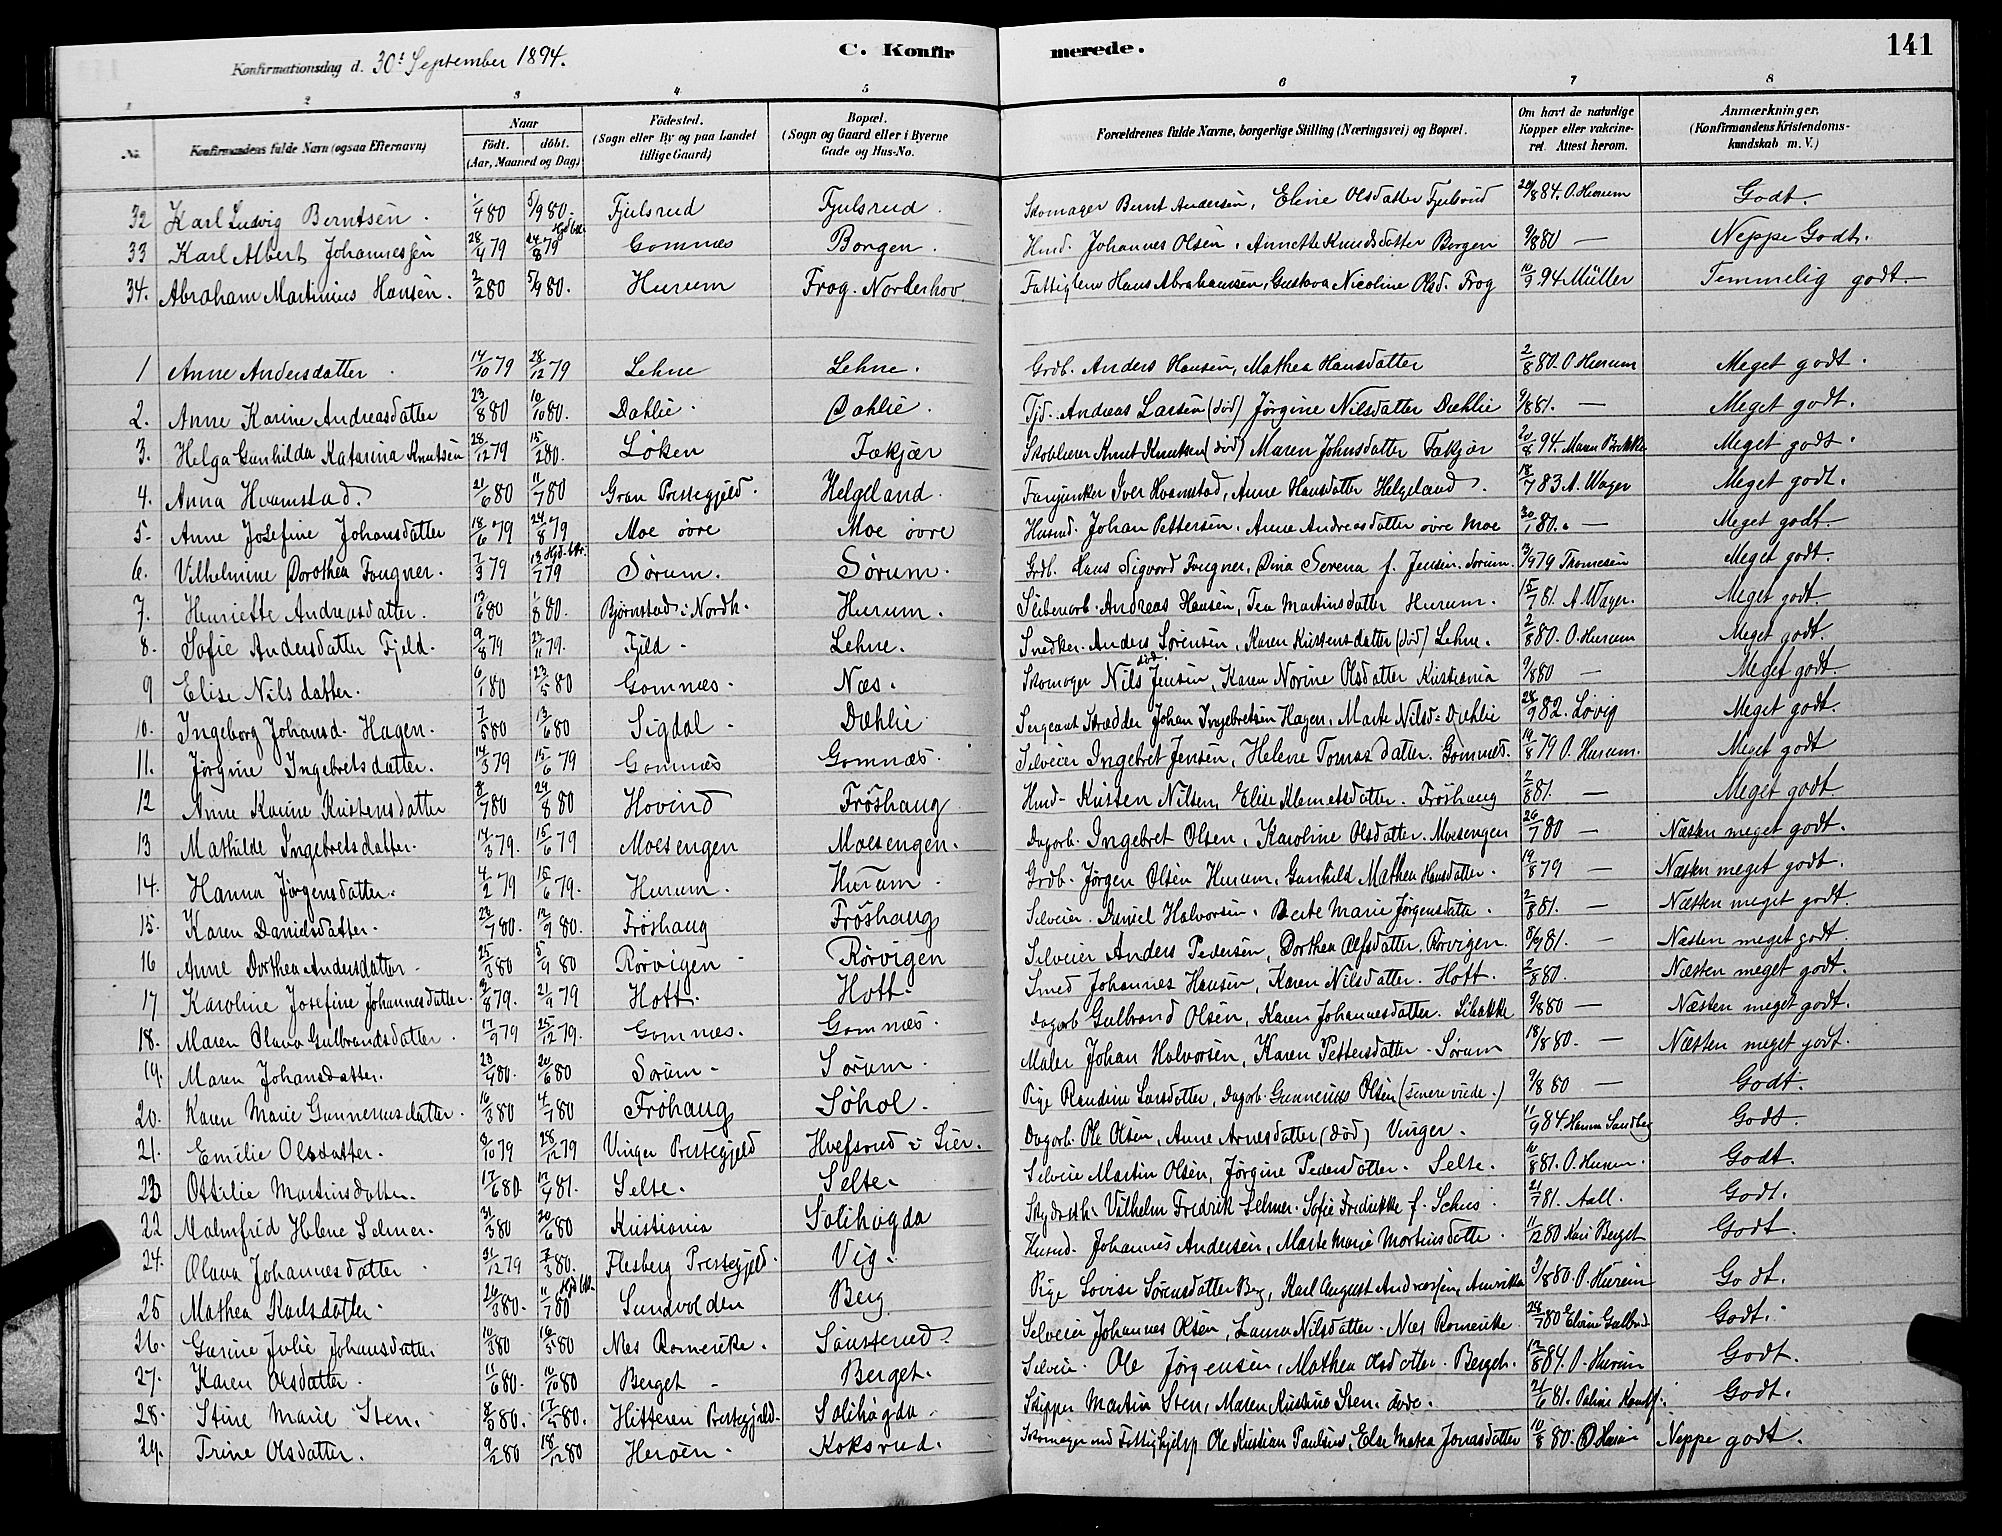 Konfirmationsdag d. 30t September 1894.
C. Konfirmerede.
141
1 2 3 4 5 6 7 8
No. Konfirmandens fulde Navn (ogsaa Efternavn) Naar født. døbt. (Aar, Maaned og Dag) Fødested. (Sogn eller By og paa Landet tillige Gaard) Bopæl. (Sogn og Gaard eller i Byerne Gade og Hus-No. Forældrenes fulde Navne, borgerlige Stilling (Næringsvei) og Bopæl. Om havt de naturlige Kopper eller vakcineret. Attest herom. Anmærkninger. (Konfirmandens Kristendomskundskab m. V.)
32 Karl Ludvig Berntsen. 1/4 80 5/9 80. Fjulsrud Fjulsrud. Skomager Bernt Andersen, Eline Olsdatter Fjulsrud 20/8 84. O. Hurum Godt.
33 Karl Albert Johannessen 28/4 79 24/8 79 Gomnæs Borgen. Husd. Johannes Olsen, Annette Knudsdatter Borgen 9/8 80 — Neppe Godt.
34. Abraham Martinius Hansen. 2/2 80 5/9 80. Hurum Frog. Norderhov Fattiglem Hans Abrahamsen, Gustava Nicoline Olsd. Frog 10/9 94 Müller Temmelig godt.
1 Anne Andersdatter. 14/10 79 28/12 79 Lehne Lehne. Grdb. Anders Hansen, Mathea Hansdatter 2/8 80. O. Hurum Meget godt.
2. Anne Karine Andreasdatter 23/8 80 10/10 80. Dahlie. Dahlie. Tjd. Andreas Larsen (död) Jørgine Nilsdatter Dæhlie 9/8 81. — Meget godt.
3. Helga Gunhilda Katarina Knutsen 28/12 79 15/2 80. Løken Fækjær Skoblærer Knut Knutsen (död) Maren Johnsdatter Fækjær 20/8 94. Maren Meget godt.
4. Anna Hvamstad. 21/6 80 11/7 80 Gran Prestegjeld. Helgeland. Fanjunker Iver Hvamstad, Anne Hansdatter Helgeland. 18/7 83 A. Wager Meget godt.
5. Anne Josefine Johansdatter 18/6 79 24/8 79 Moe övre Moe övre Husmd. Johan Pettersen. Anne Andreasdatter övre Moe 30/1 80. — Meget godt.
6. Vilhelmine Dorothea Fougner. 7/3 79 13/7 79 Sørum. Sørum. Grdb. Hans Sigvard Fougner, Dina Serena f. Jensen. Sørum. 13/9 79 Thomesen Meget godt.
7. Henriette Andreasdatter. 13/6 80 1/8 80. Bjørnstad i Nordh. Hurum. Sliberiarb. Andreas Hansen, Tea Martinsdatter Hurum. 15/7 81. A. Wager. Meget godt.
8. Sofie Andersdatter Fjeld. 9/8 79 23/11 79. Fjeld. Lehne. Snedker. Anders Sørensen, Karen Kristensdatter (död) Lehne. 2/8 80. O. Hurum Meget godt.
9 Elise Nilsdatter. 6/1 80 23/5 80 Gomnæs. Næs. Skomager Nils Jensen, död Karen Norine Olsdatter Kristiania 9/8 80 — Meget godt.
10. Ingeborg Johansd. Hagen. 7/5 80 13/6 80 Sigdal. Dæhlie Sergeant Skrædder Johan Ingebretsen Hagen, Marte Nilsd. Dæhlie 28/9 82. Løvig Meget godt.
11. Jørgine Ingebretsdatter. 14/3 79 15/6 79 Gomnæs Gomnæs. Selveier Ingebret Jensen, Helene Tomasdatter. Gomnæs. 19/8 79 O. Hurum. Meget godt
12 Anne Karine Kristensdatter 8/7 80 29/8 80 Hovind Frøshaug Husd. Kristen Nilsen, Elise Klemetsdatter. Frøshaug 2/8 81. — Meget godt
13 Mathilde Ingebretsdatter. 14/3 79. 15/6 79 Moesengen Moesengen. Dagarb. Ingebret Olsen, Karoline Olsdatter. Moesengen 26/7 80 — Næsten meget godt.
14. Hanna Jørgensdatter. 4/2 79 15/6 79. Hurum. Hurum. Grdb. Jørgen Olsen Hurum, Gunhild Mathea Hansdatter. 19/8 79 — Næsten meget godt.
15. Karen Danielsdatter. 23/7 80. 12/9 80. Frøshaug Frøshaug Selveier. Daniel Halvorsen. Berte Marie Jørgensdatter. 2/8 81. — Næsten meget godt.
16 Anne Dorthea Andersdatter. 25/3 80 5/9 80 Rørvigen Rørvigen Selveier Anders Pedersen, Dorthea Olsdatter, Rørvigen. 8/9 81. — Næsten meget godt.
17 Karoline Josefine Johannesdatter. 9/8 79. 21/9 79 Hott. Hott Smed Johannes Hansen, Karen Nilsdatter. Hott. 2/8 80. Næsten meget godt.
18. Maren Olava Gulbrandsdatter. 17/9 79 25/12 79. Gomnæs. Gomnæs. Dagarb Gulbrand Olsen, Karen Johannesdatter. Libakke 9/8 80 — Næsten meget godt.
19. Maren Johansdatter. 23/4 80. 20/6 80 Sørum. Sørum. Maler Johan Halvorsen, Karen Pettersdatter. Sørum 18/8 80. — Næsten meget godt.
20. Karen Marie Gunneriusdatter. 16/3 80 4/7 80 Frøhaug Søhol. Pige Randine Larsdatter, Dagarb. Gunnerius Olsen (senere viede.) 9/8 80 — Godt.
21. Emilie Olsdatter. 8/10 79 28/12 79 Vinger Prestegjeld Hvefsrud i Lier. Dagarb. Ole Olsen, Anne Arnesdatter (död) Vinger. 11/9 84 Hanna Sandberg Godt.
23 Ottilie Martinsdatter. 17/6 80. 17/4 81. Selte. Selte. Selveier Martin Olsen, Jørgine Pedersdatter. Selte. 10/8 81. O. Hurum. Godt.
22 Malmfrid Helene Selmer. 31/3 80 20/6 80 Kristiania Solihøgda Skydssth. Vilhelm Fredrik Selmer. Sofie Fredrikke f. 21/7 81. Aall. Godt.
24. Olava Johannesdatter. 31/12 79 7/3 80. Flesberg Prestegjeld. Vig. Husmd. Johannes Andersen, Marte Marie Martinsdatter. 11/12 80 Kari Berget Godt.
25 Mathea Karlsdatter. 26/3 80. 11/7 80 Sundvolden Berg Pige Lovise Sørensdatter Berg, Karl August Andreassen, Amerika 3/8 80. O. Hurum Godt.
26. Gurine Julie Johansdatter 10/3 80 16/5 80 Næs Romerike. Sønsterud. Selveier Johannes Olsen, Laura Nilsdatter. Næs Romerike. 28/7 80 Eline Gulbrd. Godt.
27. Karen Olsdatter. 11/6 80. 10/10 80 Berget. Berget. Selveier. Ole Jørgensen, Mathea Olsdatter. Berget. 12/8 84. O. Hurum Godt.
28. Stine Marie Sten. 8/3 80. 17/5 80. Hitteren Prestegjeld. Solihøgda. Skipper Martin Sten, Maren Kristine Sten. döde. 21/6 81. Godt.
29. Trine Olsdatter. 9/2 80 18/12 80 Herøen. Koksrud. Skomager med Fattighjelp Ole Kristian Paulsen, Else Marta Jonasdatter 10/8 80. O Hurum Neppe godt.